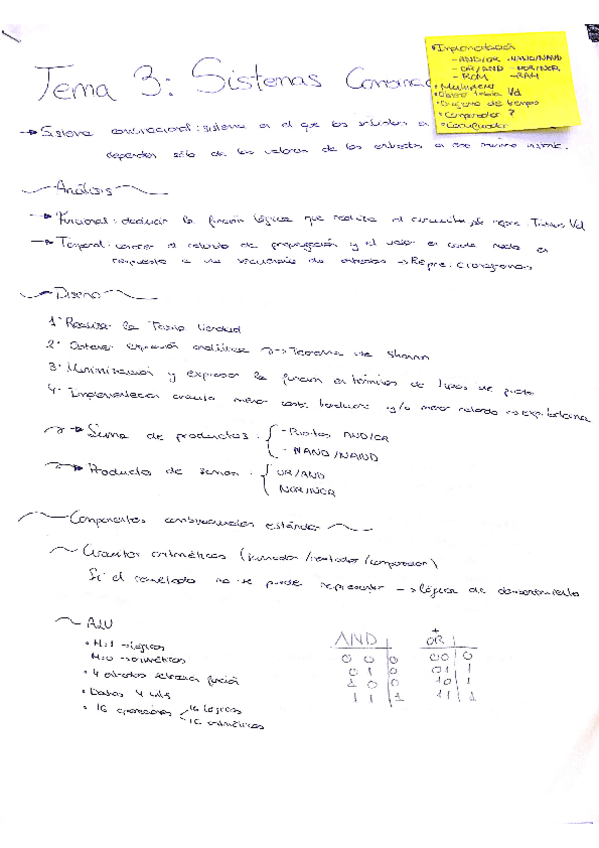 Tema 3: Sistemas Combinac
• Implementación
- AND/OR - NAND/NAND
- OR/AND - NOR/NOR
- ROM - RAM
• Multiplexor
• Tabla Vd
• tiempos
• Comparador ?
• Codificador
→ Sistema combinacional: sistema en el que las salidas en
dependen sólo de los valores de las entradas en ese mismo
Análisis
→ Funcional: deducir la función lógica que realiza el circuito repre. Tablas Vd
→ Temporal: conocer el retardo de propagación y el valor en cada nodo en
respuesta a una secuencia de entradas → Repre. Cronogramas
Diseño
1º Realizar la Tabla Verdad
2º Obtener expresión analítica → Teorema de Shann
3º Minimización y expresar la función en términos de tipos de
4º Implementación circuito menor coste hardware y/o menor retardo
→ Suma de productos: - Puertas AND/OR
- NAND/NAND
→ Producto de sumas: OR/AND
NOR/NOR
Componentes combinacionales estándar
Circuitos aritméticos (sumador/restador/comparador)
Si el resultado no se puede representar → lógica de desbordamiento
ALU
• M=1 → lógicas
M=0 → aritméticas
• 4 entradas selecciona función
• Datos 4 bits
• 16 operaciones 16 lógicas
16 aritméticas
AND
0 0 0
0 1 0
1 0 0
1 1 1
+
OR
0 0 0
0 1 1
1 0 1
1 1 1